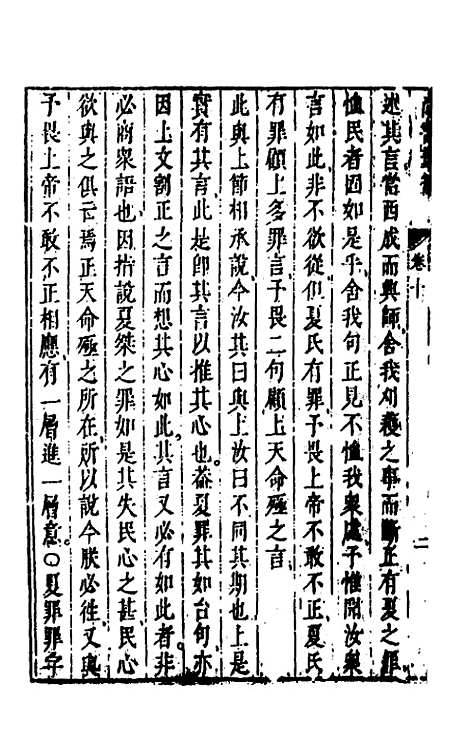 卷十
二
述其言當西成而興師舍我刈穫之事而斷正有夏之罪
恤民者固如是乎舍我句正見不恤我衆處予惟聞汝衆
言如此非不欲從但夏氏有罪予畏上帝不敢不正夏氏
有罪顧上多罪言予畏二句顧上天命殛之言
此與上節相承說今汝其曰與上汝曰不同其期也上是
實有其言此是即其言以推其心也葢夏罪其如台句亦
因上文割正之言而想其心如此其言又必有如此者非
必商衆語也因指說夏桀之罪如是其失民心之甚民心
欲與之俱亡焉正天命殛之所在所以說今朕必徃又與
予畏上帝不敢不正相應有一層進一層意○夏罪罪字